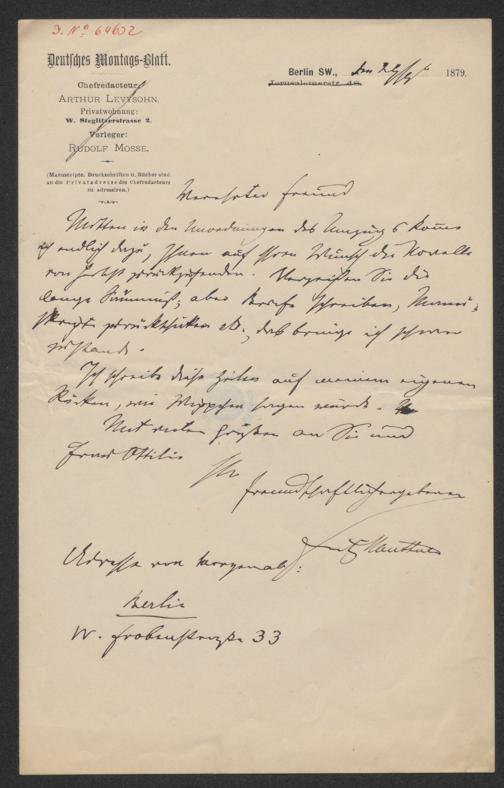 J. No 64632
Deutsches Montags-Blatt.
Chefredacteur
ARTHUR LEVYSOHN.
Privatwohnung:
W. Steglitzerstrasse 2.
Verleger:
RUDOLF MOSSE.
(Manuscripte, Druckschriften u. Bücher sind
an die Privatadresse des Chefredacteurs
zu adressiren.)
Berlin SW., den 1879.
Jerusalemerstr. 48.
Verehrter Freund
Mitten in den Unordnungen des Umzugs komme
ich endlich dazu, Ihnen auf Ihren Wunsch die Novelle
von zurückzusenden. Verzeihen Sie die
lange Säumniß; aber Briefe schreiben, Manu-
skripte zurückschicken etc., das bringe ich schwer
zu Stande.
Ich schreibe diese Zeilen auf meinem eigenen
Rücken, wie Wippchen sagen würde.
Mit vielen Grüßen an Sie und
Frau Ottilie
Ihr
freundschaftlichergebener
Fritz Mauthner
Adresse von morgen ab:
Berlin
W. Frobenstraße 33